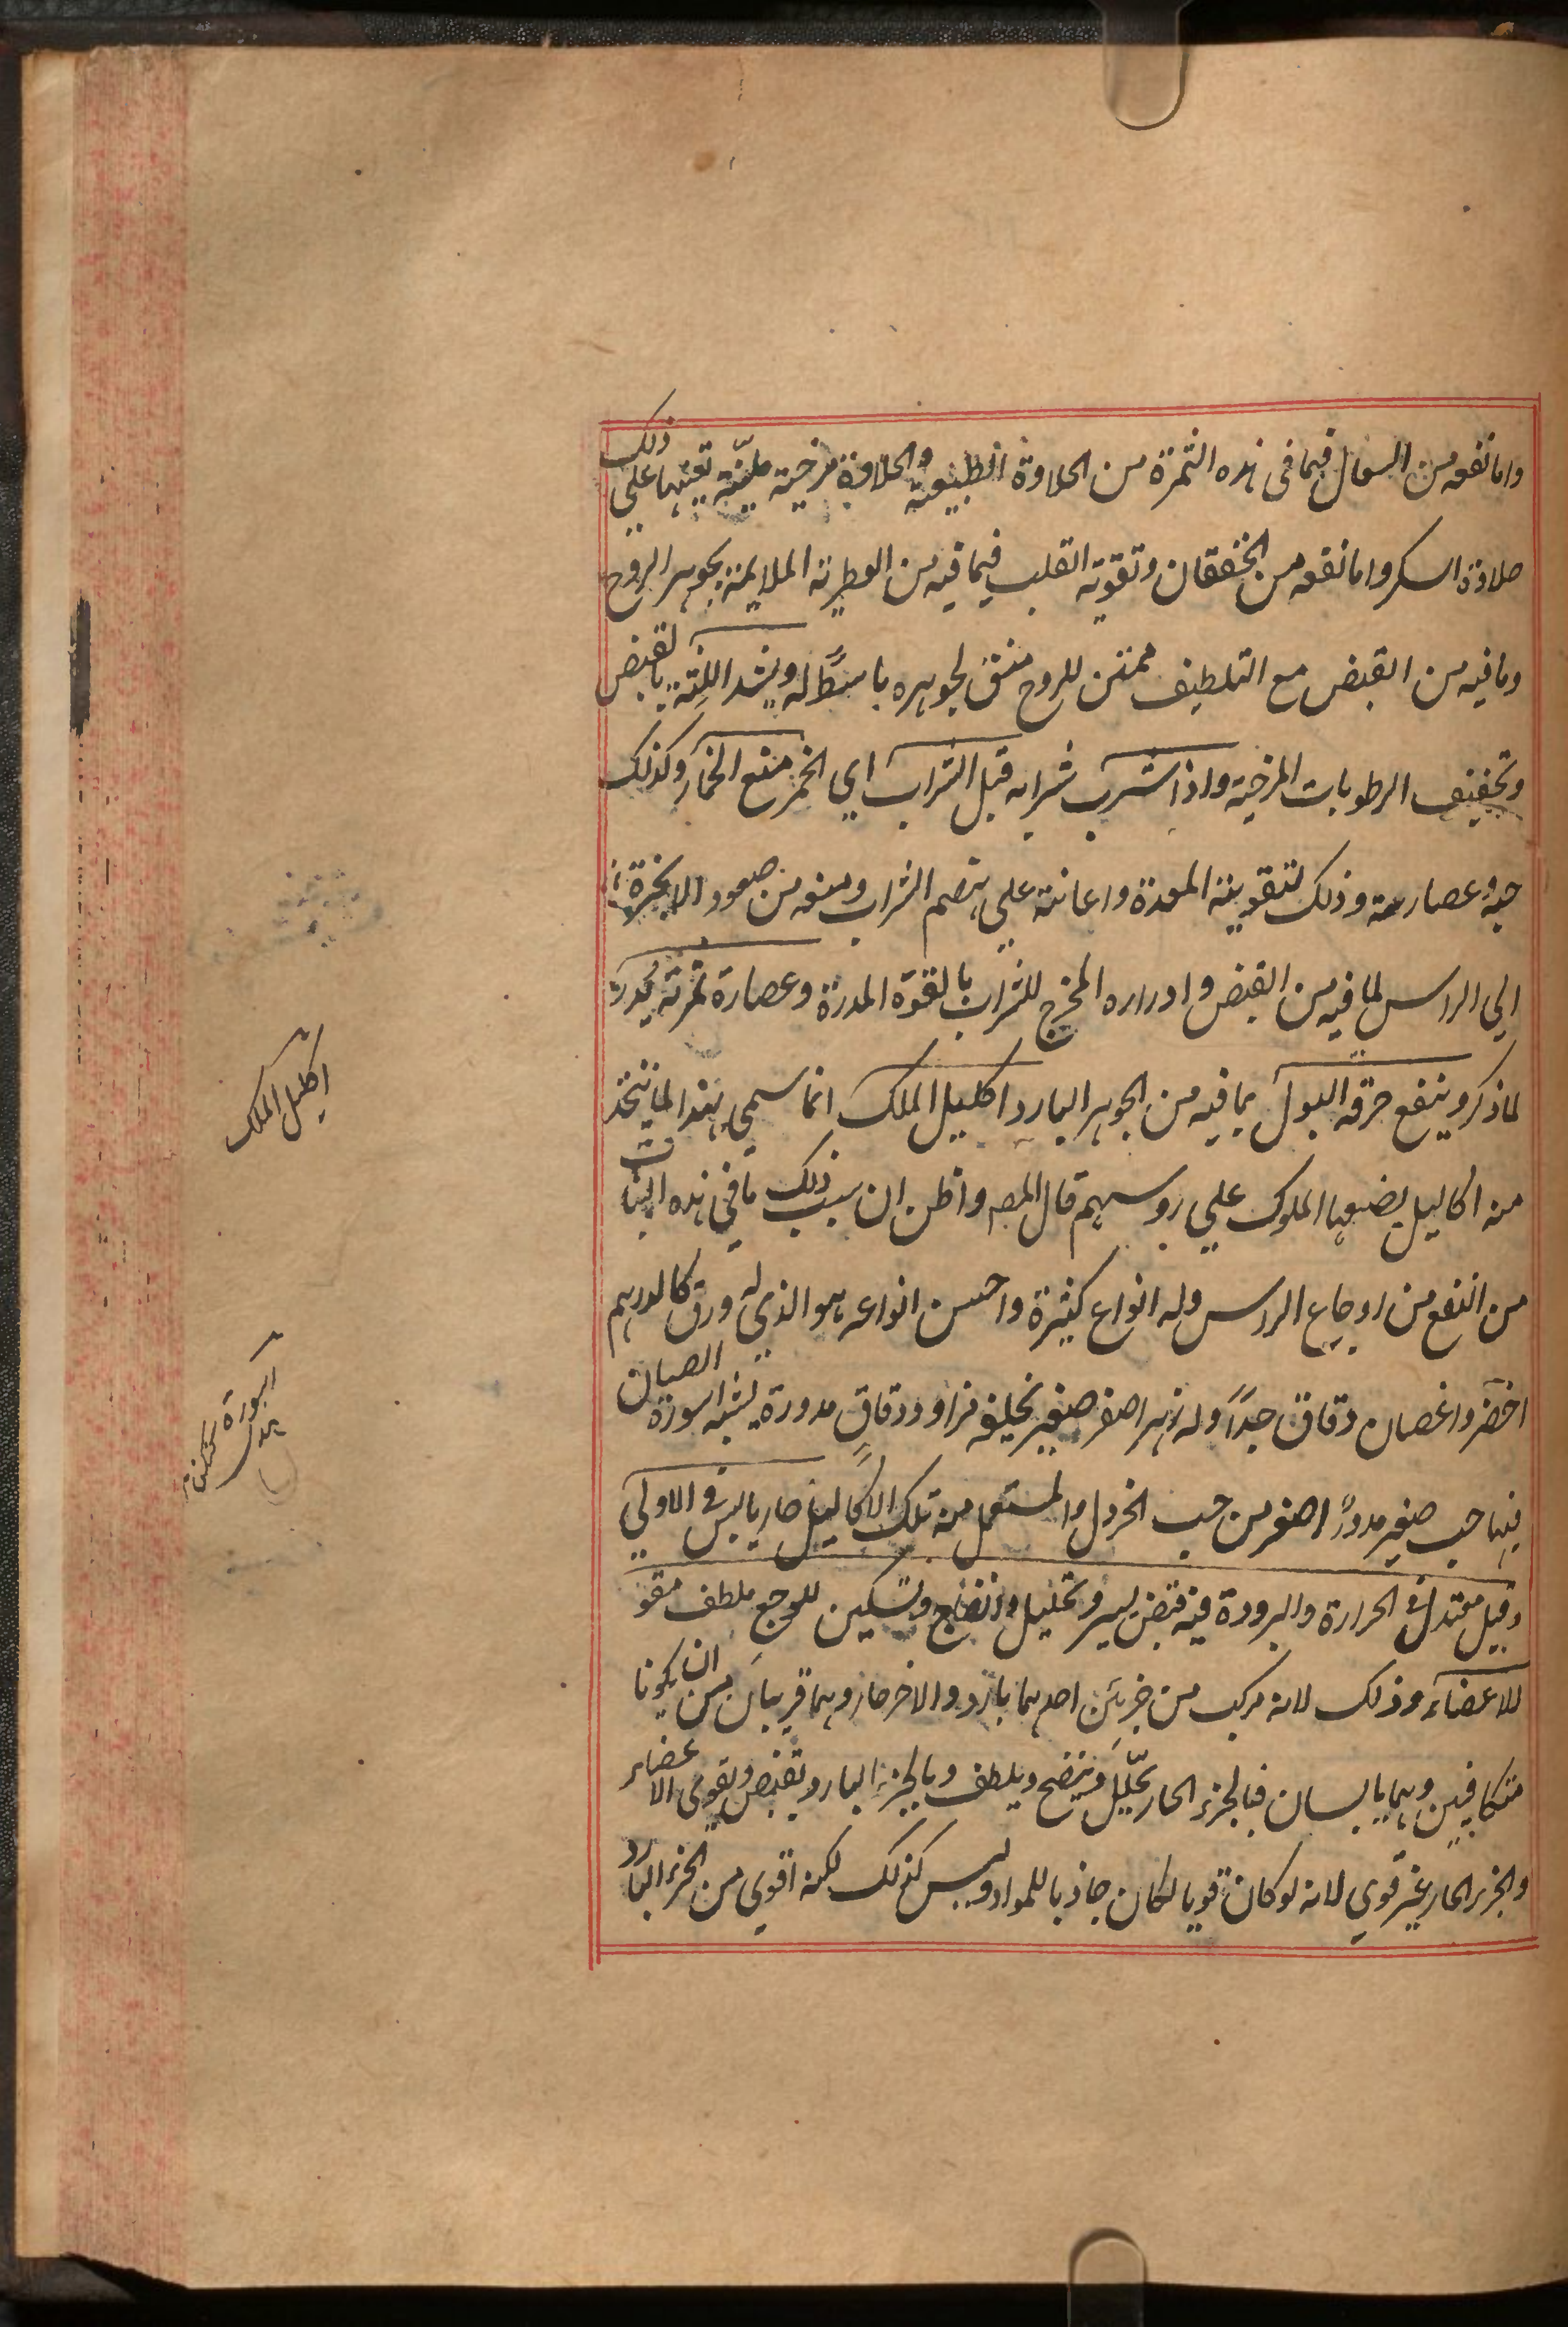 واما نفعه من السعال فبما فى هذه الثمرة من الحلاوة الطبيعية والحلاوة مرخية ملينة تعينها على ذلك
حلاوة السكر واما نفعه من الخفقان وتقوية القلب فبما فيه من العطرية الملايمة بجوهر الروح
وما فيه من القبض مع التلطيف ممتن للروح منق لجوهره باسطا له ويشد اللثة بالقبض
وتجفيف الرطوبات المرخية واذا شرب شرابه قبل الشراب اي الخمر منع الخمار وكذلك
حبه وعصارته وذلك لتقويته المعدة واعانته علي هضم الشراب ومنعه من صعود الابخرة
الي الراس لما فيه من القبض وادراره المخرج للشراب بالقوة المدرة وعصارة ثمرته يدر
لما ذكر وينفع حرقة البول بما فيه من الجوهر البارد اكليل الملك انما سمي بهذا لما يتخذ
منه اكاليل يضعها الملوك علي روسهم قال المص واظن ان سبب ذلك ما في هذه النبات
من النفع من اوجاع الراس وله انواع كثيرة واحسن انواعه هو الذي له ورق كالدرهم
اخضر واغصان دقاق جداً وله زهر اصفر صغير تخليفه مزاود دقاق مدورة يشبه اسورة الصبيان
فيها حب صغير مدور اصغر من حب الخردل والمستعمل منه تلك الاكاليل حار يابس في الاولي
وقيل معتدل في الحرارة والبرودة فيه قبض يسير وتحليل وانضاج وتسكين للوجع ملطف مقو
للاعضاء وذلك لانه مركب من جزئين احدهما بارد والاخر حار وهما قريبان من ان يكونا
متكافيين وهما يابسان فبالجزء الحار يحلل وينضج ويلطف وبالجزء البارد يقبض ويقوي الاعضاء
والجزء الحار غير قوي لانه لو كان قويا لكان جاذبا للمواد وليس كذلك لكنه اقوي من الجزء البارد
اكليل الملك
اسورة